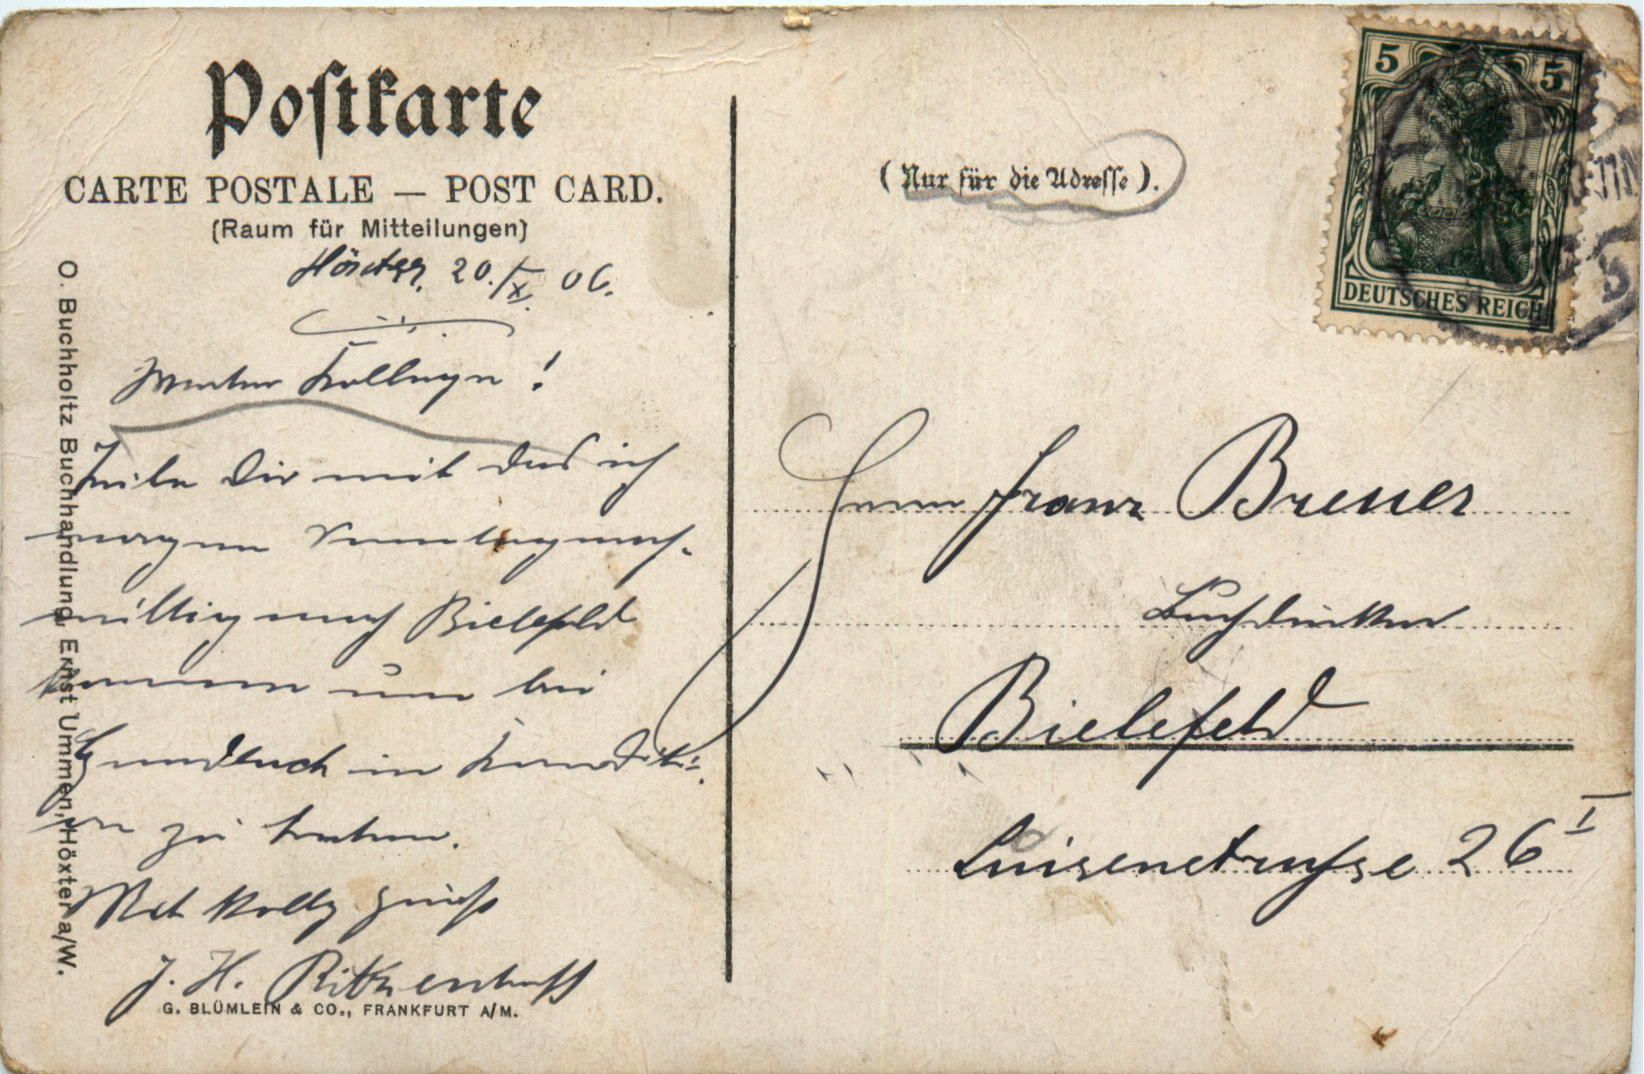 Postkarte
CARTE POSTALE — POST CARD.
(Raum für Mitteilungen)
Höxter, 20./X. 06.
Werter Kollege!
Teile Dir mit das ich
morgen Sonntagnach-
mittag nach Bielefeld
komme um bei
Gundlach in
zu treten.
Mit Kolleg Gruß
J. H.
O. Buchholtz Buchhandlung Ernst Ummen, Höxter a/W.
G. BLÜMLEIN & CO., FRANKFURT A/M.
(Nur für die Adresse).
5 5
DEUTSCHES REICH
Herrn Franz Breuer
Buchdrucker
Bielefeld
Luisenstrasse 26 I